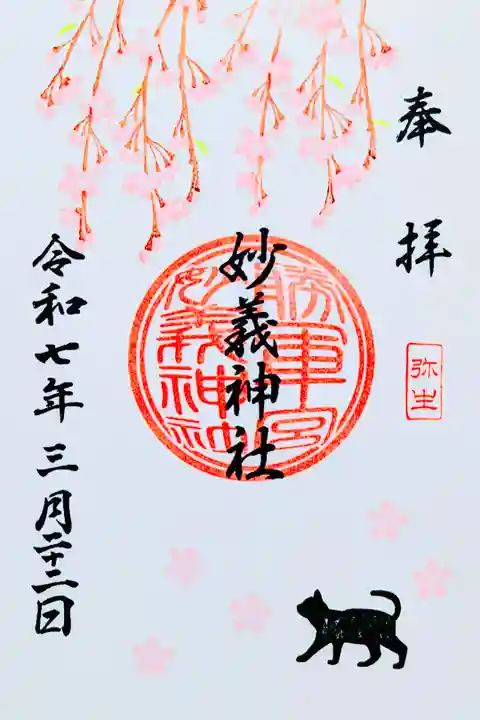 奉拝
弥生
妙義神社
勝軍宮
妙義神社
令和七年三月二十二日